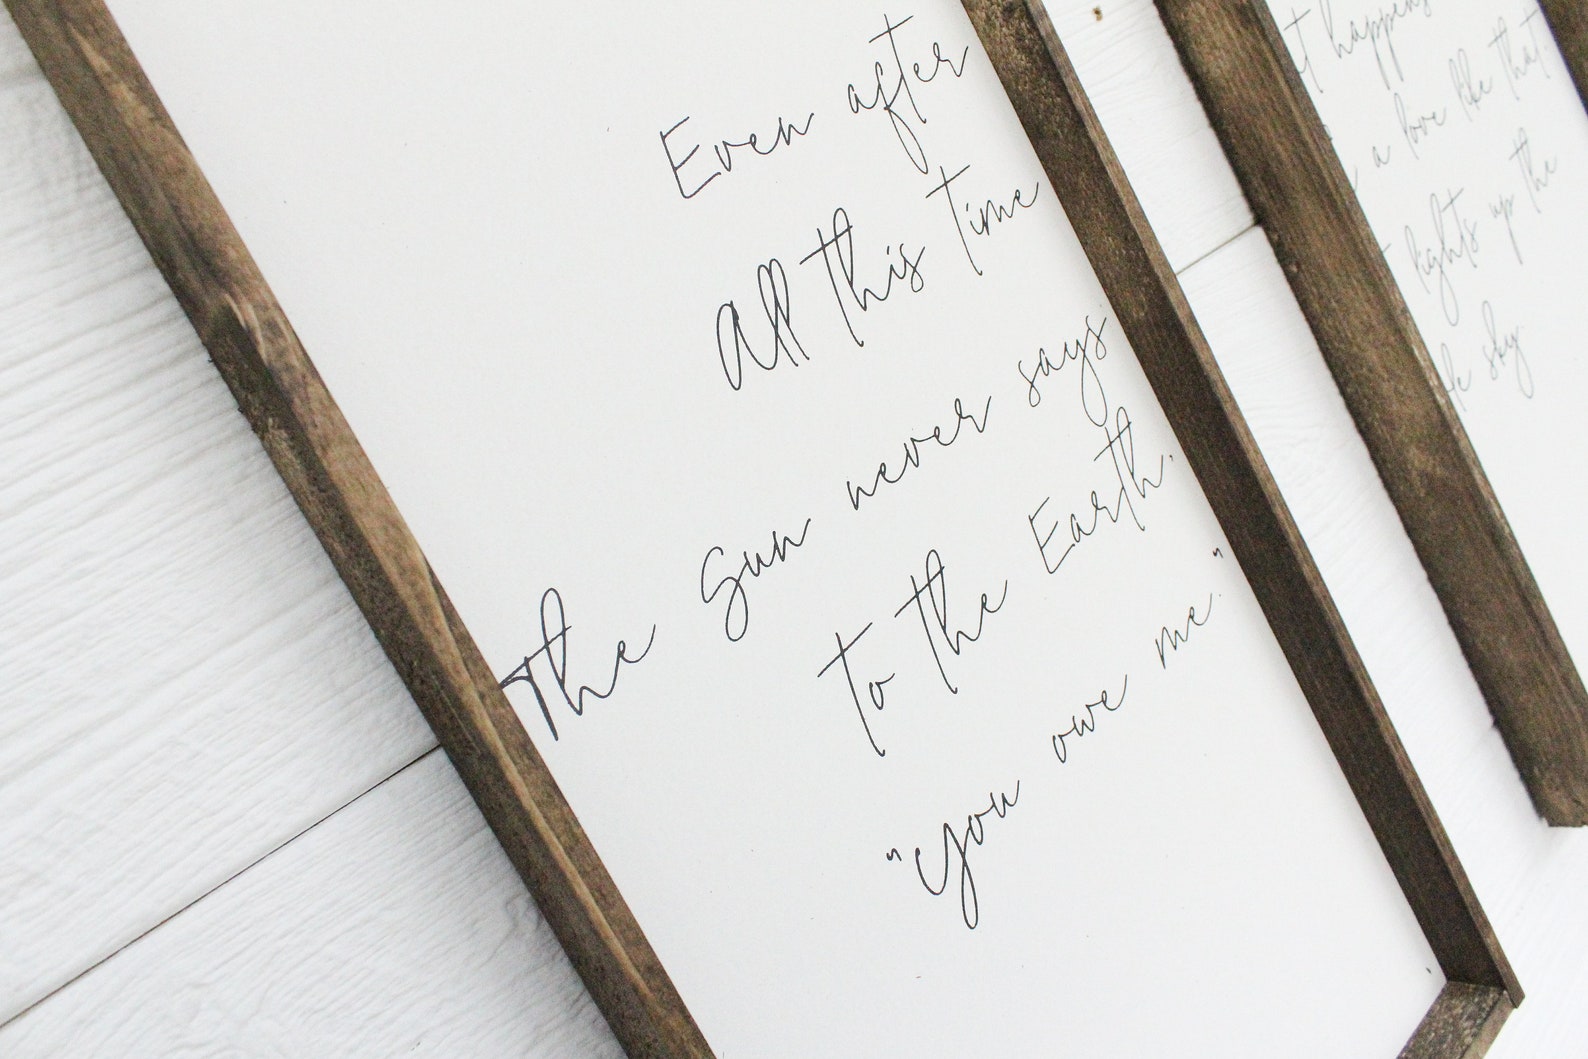 Even after
All this time
The Sun never says
to the Earth,
"You owe me."
happens
a love like that.
lights up the
sky.